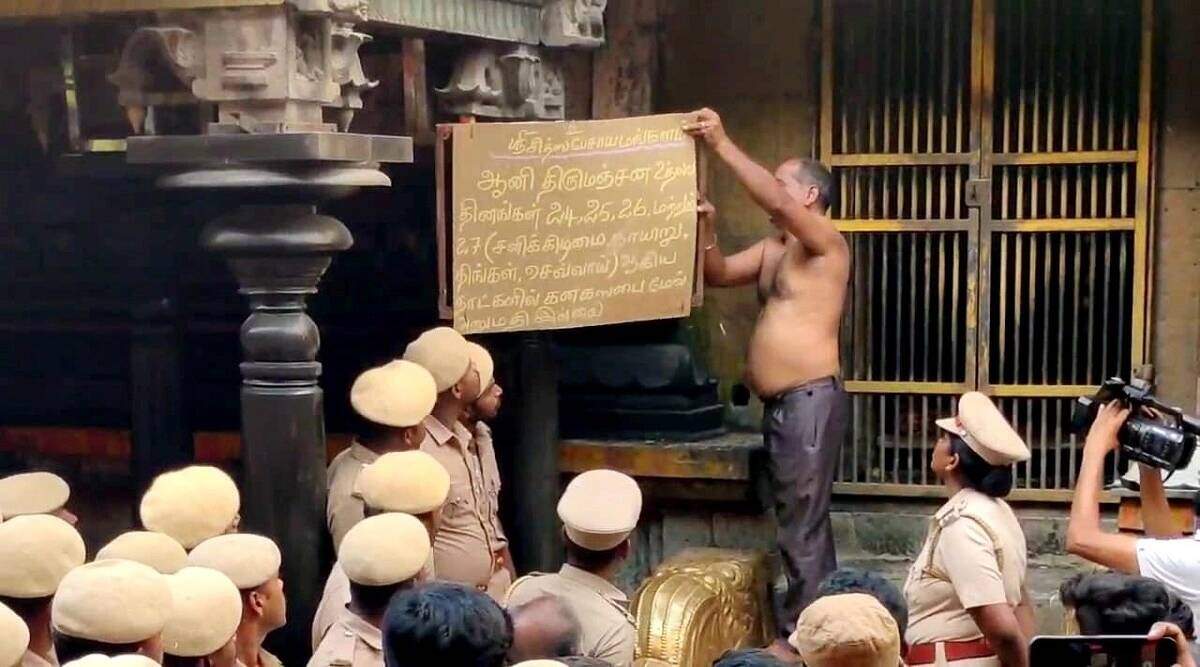 ஆனி திருமஞ்சன உற்சவ
தினங்கள் 24, 25, 26, மற்றும்
27 (சனிக்கிழமை, ஞாயிறு,
திங்கள், செவ்வாய்) ஆகிய
நாட்களில் கனகஸபை மேல்
அனுமதி இல்லை